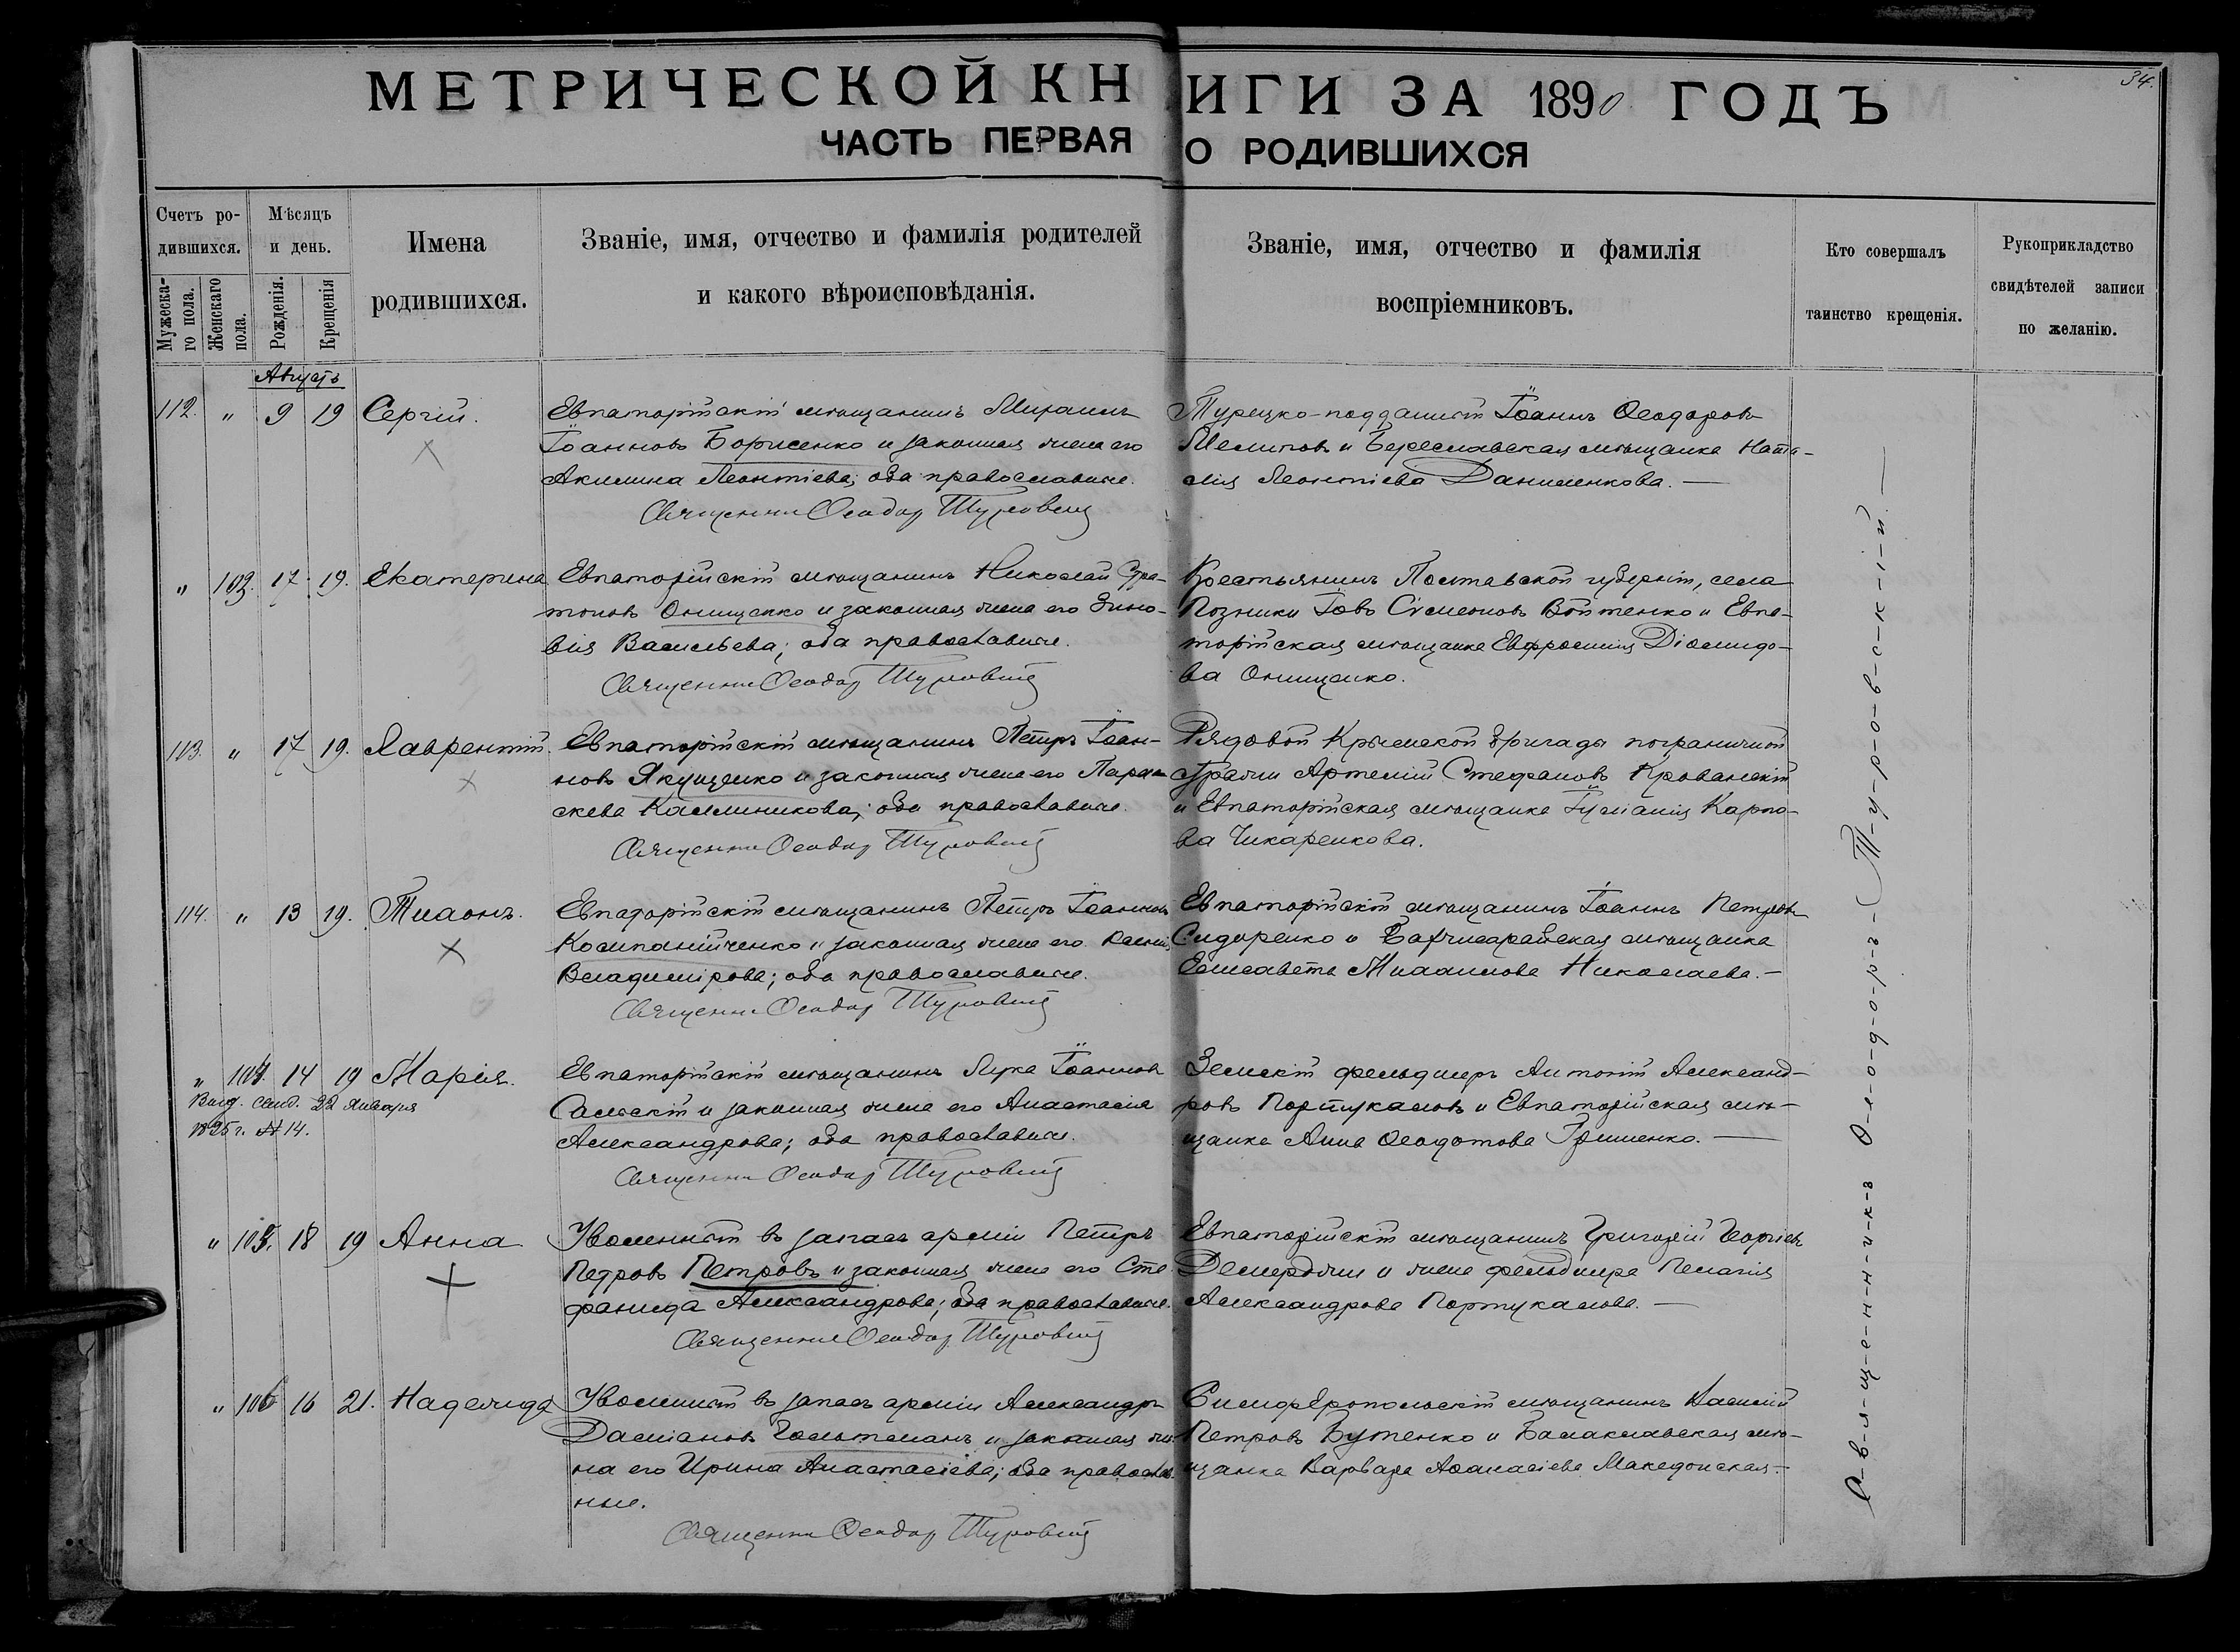 34.
МЕТРИЧЕСКОЙ КНИГИ ЗА 1890 ГОДЪ
ЧАСТЬ ПЕРВАЯ О РОДИВШИХСЯ
Счетъ ро-
дившихся.
Мужеска-
го пола.
Женскаго
пола.
Мѣсяцъ
и день.
Рожденія.
Крещенія
Имена
родившихся.
Званіе, имя, отчество и фамилія родителей
и какого вѣроисповѣданія.
Званіе, имя, отчество и фамилія
воспріемниковъ.
Кто совершалъ
таинство крещенія.
Рукоприкладство
свидѣтелей записи
по желанію.
Августъ
112. " 9 19 Сергій.
Евпаторійскій мѣщанинъ Михаилъ
Іоанновъ Борисенко и законная жена его
Акилина Леонтіева; оба православные.
Священникъ Ѳеодоръ Туровскій
Турецко-подданный Іоаннъ Ѳеодоровъ
и Береславская мѣщанка Ната-
лія Леонтіева Даниленкова.
" 103. 17 19. Екатерина
Евпаторійскій мѣщанинъ Николай Стра-
тоновъ Онищенко и законная жена его Зино-
вія Васильева; оба православные.
Священникъ Ѳеодоръ Туровскій
Крестьянинъ Полтавской губерніи, села
Позники Іовъ Сѵмеоновъ Войтенко и Евпа-
торійская мѣщанка Евфросинія Діомидо-
ва Онищенко.
113. " 17 19. Лаврентій.
Евпаторійскій мѣщанинъ Петръ Іоан-
новъ Якущенко и законная жена его Парас-
скева Каллиникова; оба православные.
Священникъ Ѳеодоръ Туровскій
Рядовой Крымской бригады пограничной
стражи Артемій Стефановъ
и Евпаторійская мѣщанка Іуліанія Карпо-
ва Чикаренкова.
114. " 13 19. Тихонъ.
Евпаторійскій мѣщанинъ Петръ Іоанновъ
Компанійченко и законная жена его Ксенія
Владимірова; оба православные.
Священникъ Ѳеодоръ Туровскій
Евпаторійскій мѣщанинъ Іоаннъ Петровъ
Сидоренко и Бахчисарайская мѣщанка
Елисавета Михаилова Николаева.
" 104. 14 19 Марія.
Выд. свид. 22 Января
1895 г. № 14.
Евпаторійскій мѣщанинъ Лука Іоанновъ
Сальскій и законная жена его Анастасія
Александрова; оба православные.
Священникъ Ѳеодоръ Туровскій
Земскій фельдшеръ Антоній Александ-
ровъ Портукаловъ и Евпаторійская мѣ-
щанка Анна Ѳеодотова Гришенко.
" 105. 18 19 Анна
Уволенный въ запасъ арміи Петръ
Петровъ Петровъ и законная жена его Сте-
фанида Александрова; оба православные.
Священникъ Ѳеодоръ Туровскій
Евпаторійскій мѣщанинъ Григорій Георгіевъ
Демерджи и жена фельдшера Пелагія
Александрова Портукалова.
" 106 16 21. Надежда
Уволенный въ запасъ арміи Александръ
Даміановъ Гольтманъ и законная же-
на его Ирина Анастасіева; оба православ-
ные.
Священникъ Ѳеодоръ Туровскій
Симферопольскій мѣщанинъ Василій
Петровъ Бутенко и Балаклавская мѣ-
щанка Варвара Аѳанасіева Македонская.
С-в-я-щ-е-н-н-и-к-ъ Ѳ-е-о-д-о-р-ъ Т-у-р-о-в-с-к-і-й.